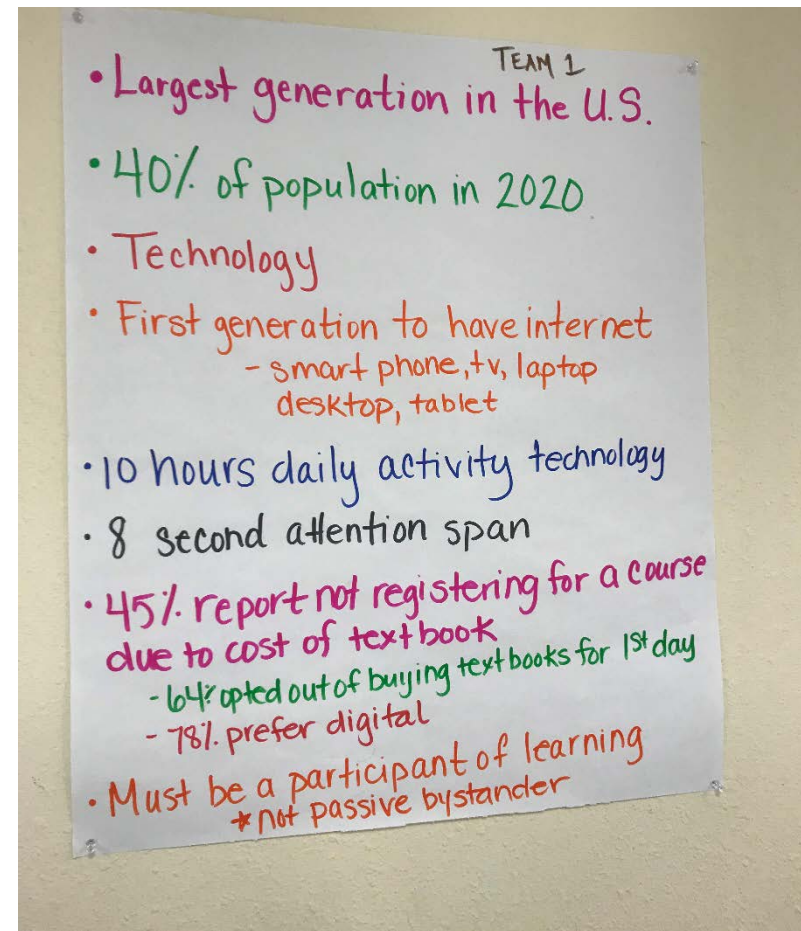 TEAM 1
• Largest generation in the U.S.
• 40% of population in 2020
• Technology
• First generation to have internet
- smart phone, tv, laptop
desktop, tablet
• 10 hours daily activity technology
• 8 second attention span
• 45% report not registering for a course
due to cost of textbook
- 64% opted out of buying textbooks for 1st day
- 78% prefer digital
• Must be a participant of learning
* not passive bystander